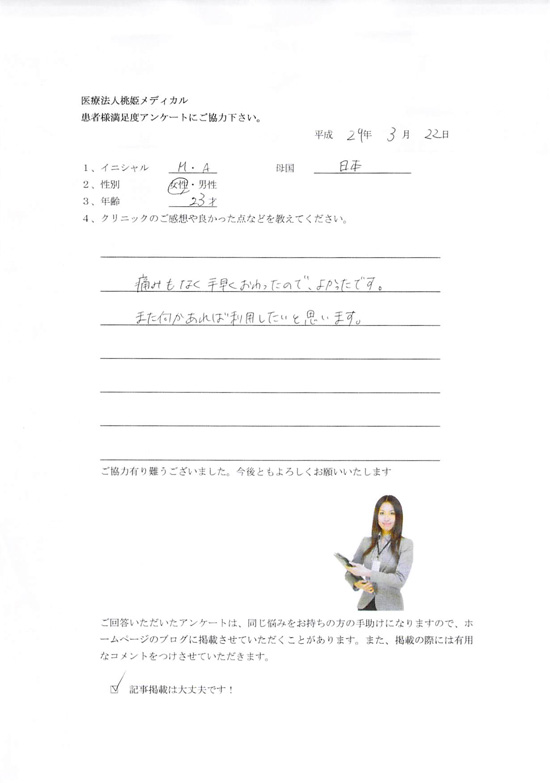 医療法人桃姫メディカル
患者様満足度アンケートにご協力下さい。
平成 29年 3月 22日
1、イニシャル M・A 母国 日本
2、性別 女性・男性
3、年齢 23才
4、クリニックのご感想や良かった点などを教えてください。
痛みもなく手早くおわったので、よかったです。
また何かあれば利用したいと思います。
ご協力有り難うございました。今後ともよろしくお願いいたします
ご回答いただいたアンケートは、同じ悩みをお持ちの方の手助けになりますので、ホ
ームページのブログに掲載させていただくことがあります。また、掲載の際には有用
なコメントをつけさせていただきます。
☑ 記事掲載は大丈夫です！